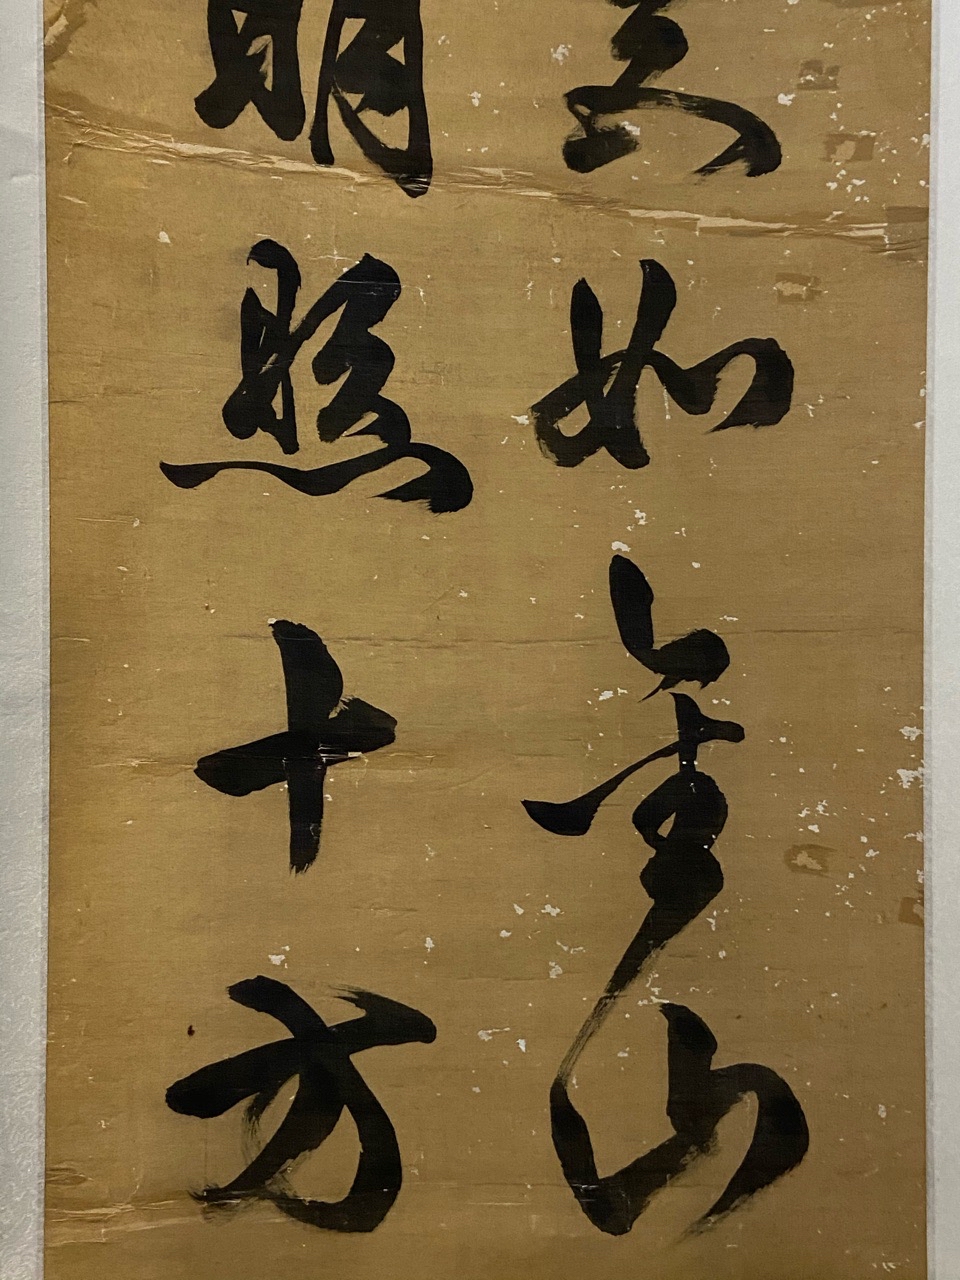 如金山
明照十方